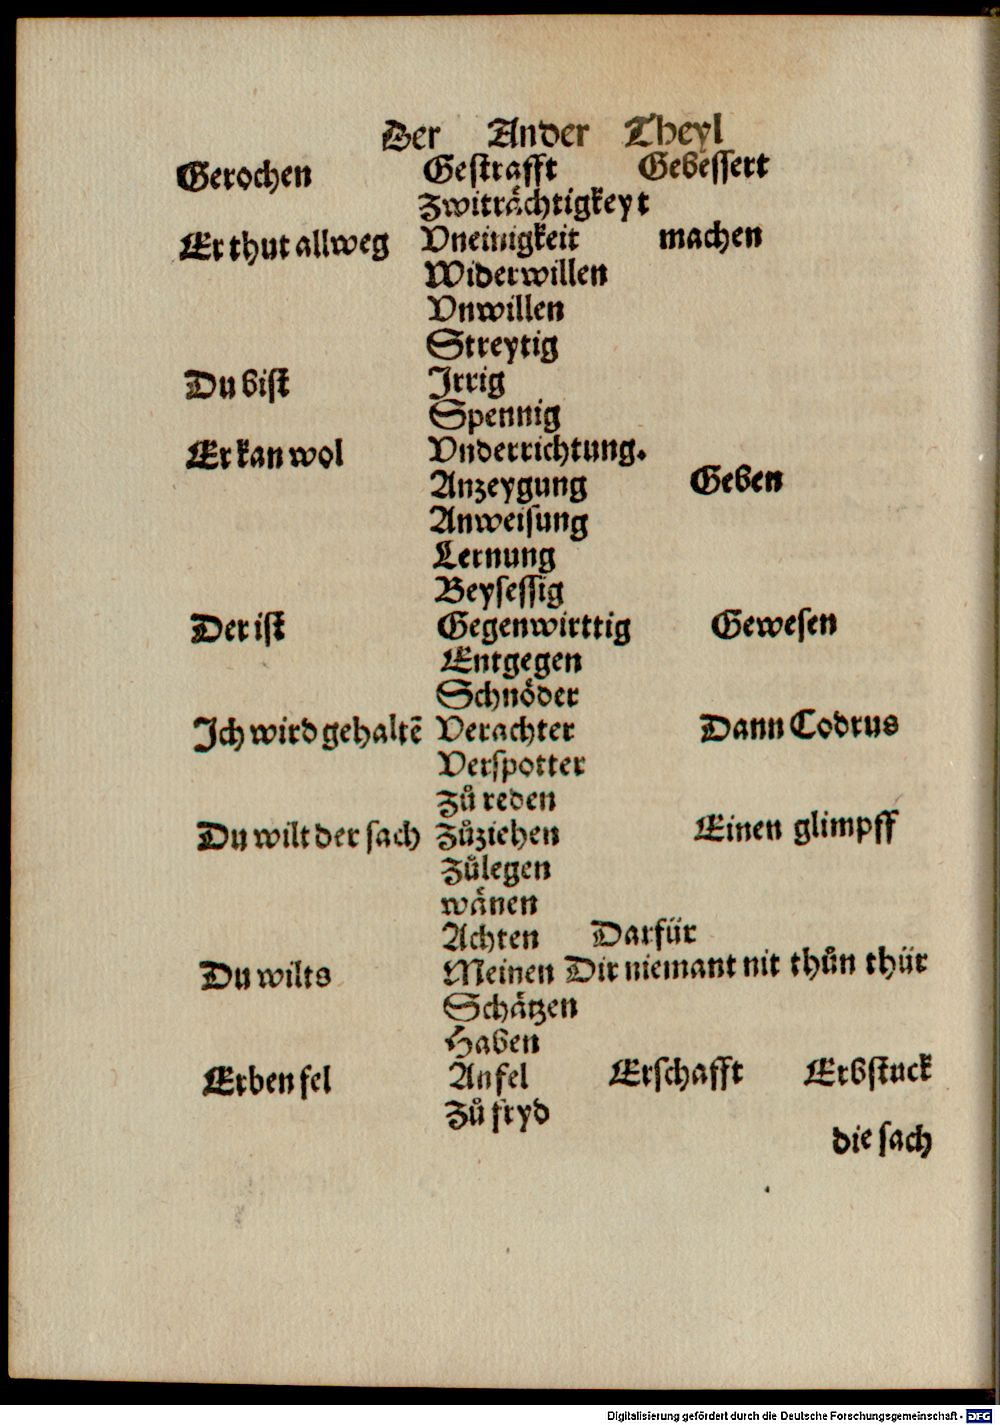 Der Ander Theyl
Gerochen Gestrafft Gebessert
Zwiträchtigkeyt
Er thut allweg Vneinigkeit machen
Widerwillen
Vnwillen
Streytig
Du bist Irrig
Spennig
Er kan wol Vnderrichtung.
Anzeygung Geben
Anweisung
Lernung
Beysessig
Der ist Gegenwirttig Gewesen
Entgegen
Schnöder
Ich wird gehaltē Verachter Dann Codrus
Verspotter
Zů reden
Du wilt der sach Zůziehen Einen glimpff
Zůlegen
wänen
Achten Darfür
Du wilts Meinen Dir niemant nit thůn thür
Schätzen
Haben
Erben fel Anfel Erschafft Erbstuck
Zů fryd
die sach
Digitalisierung gefördert durch die Deutsche Forschungsgemeinschaft - DFG